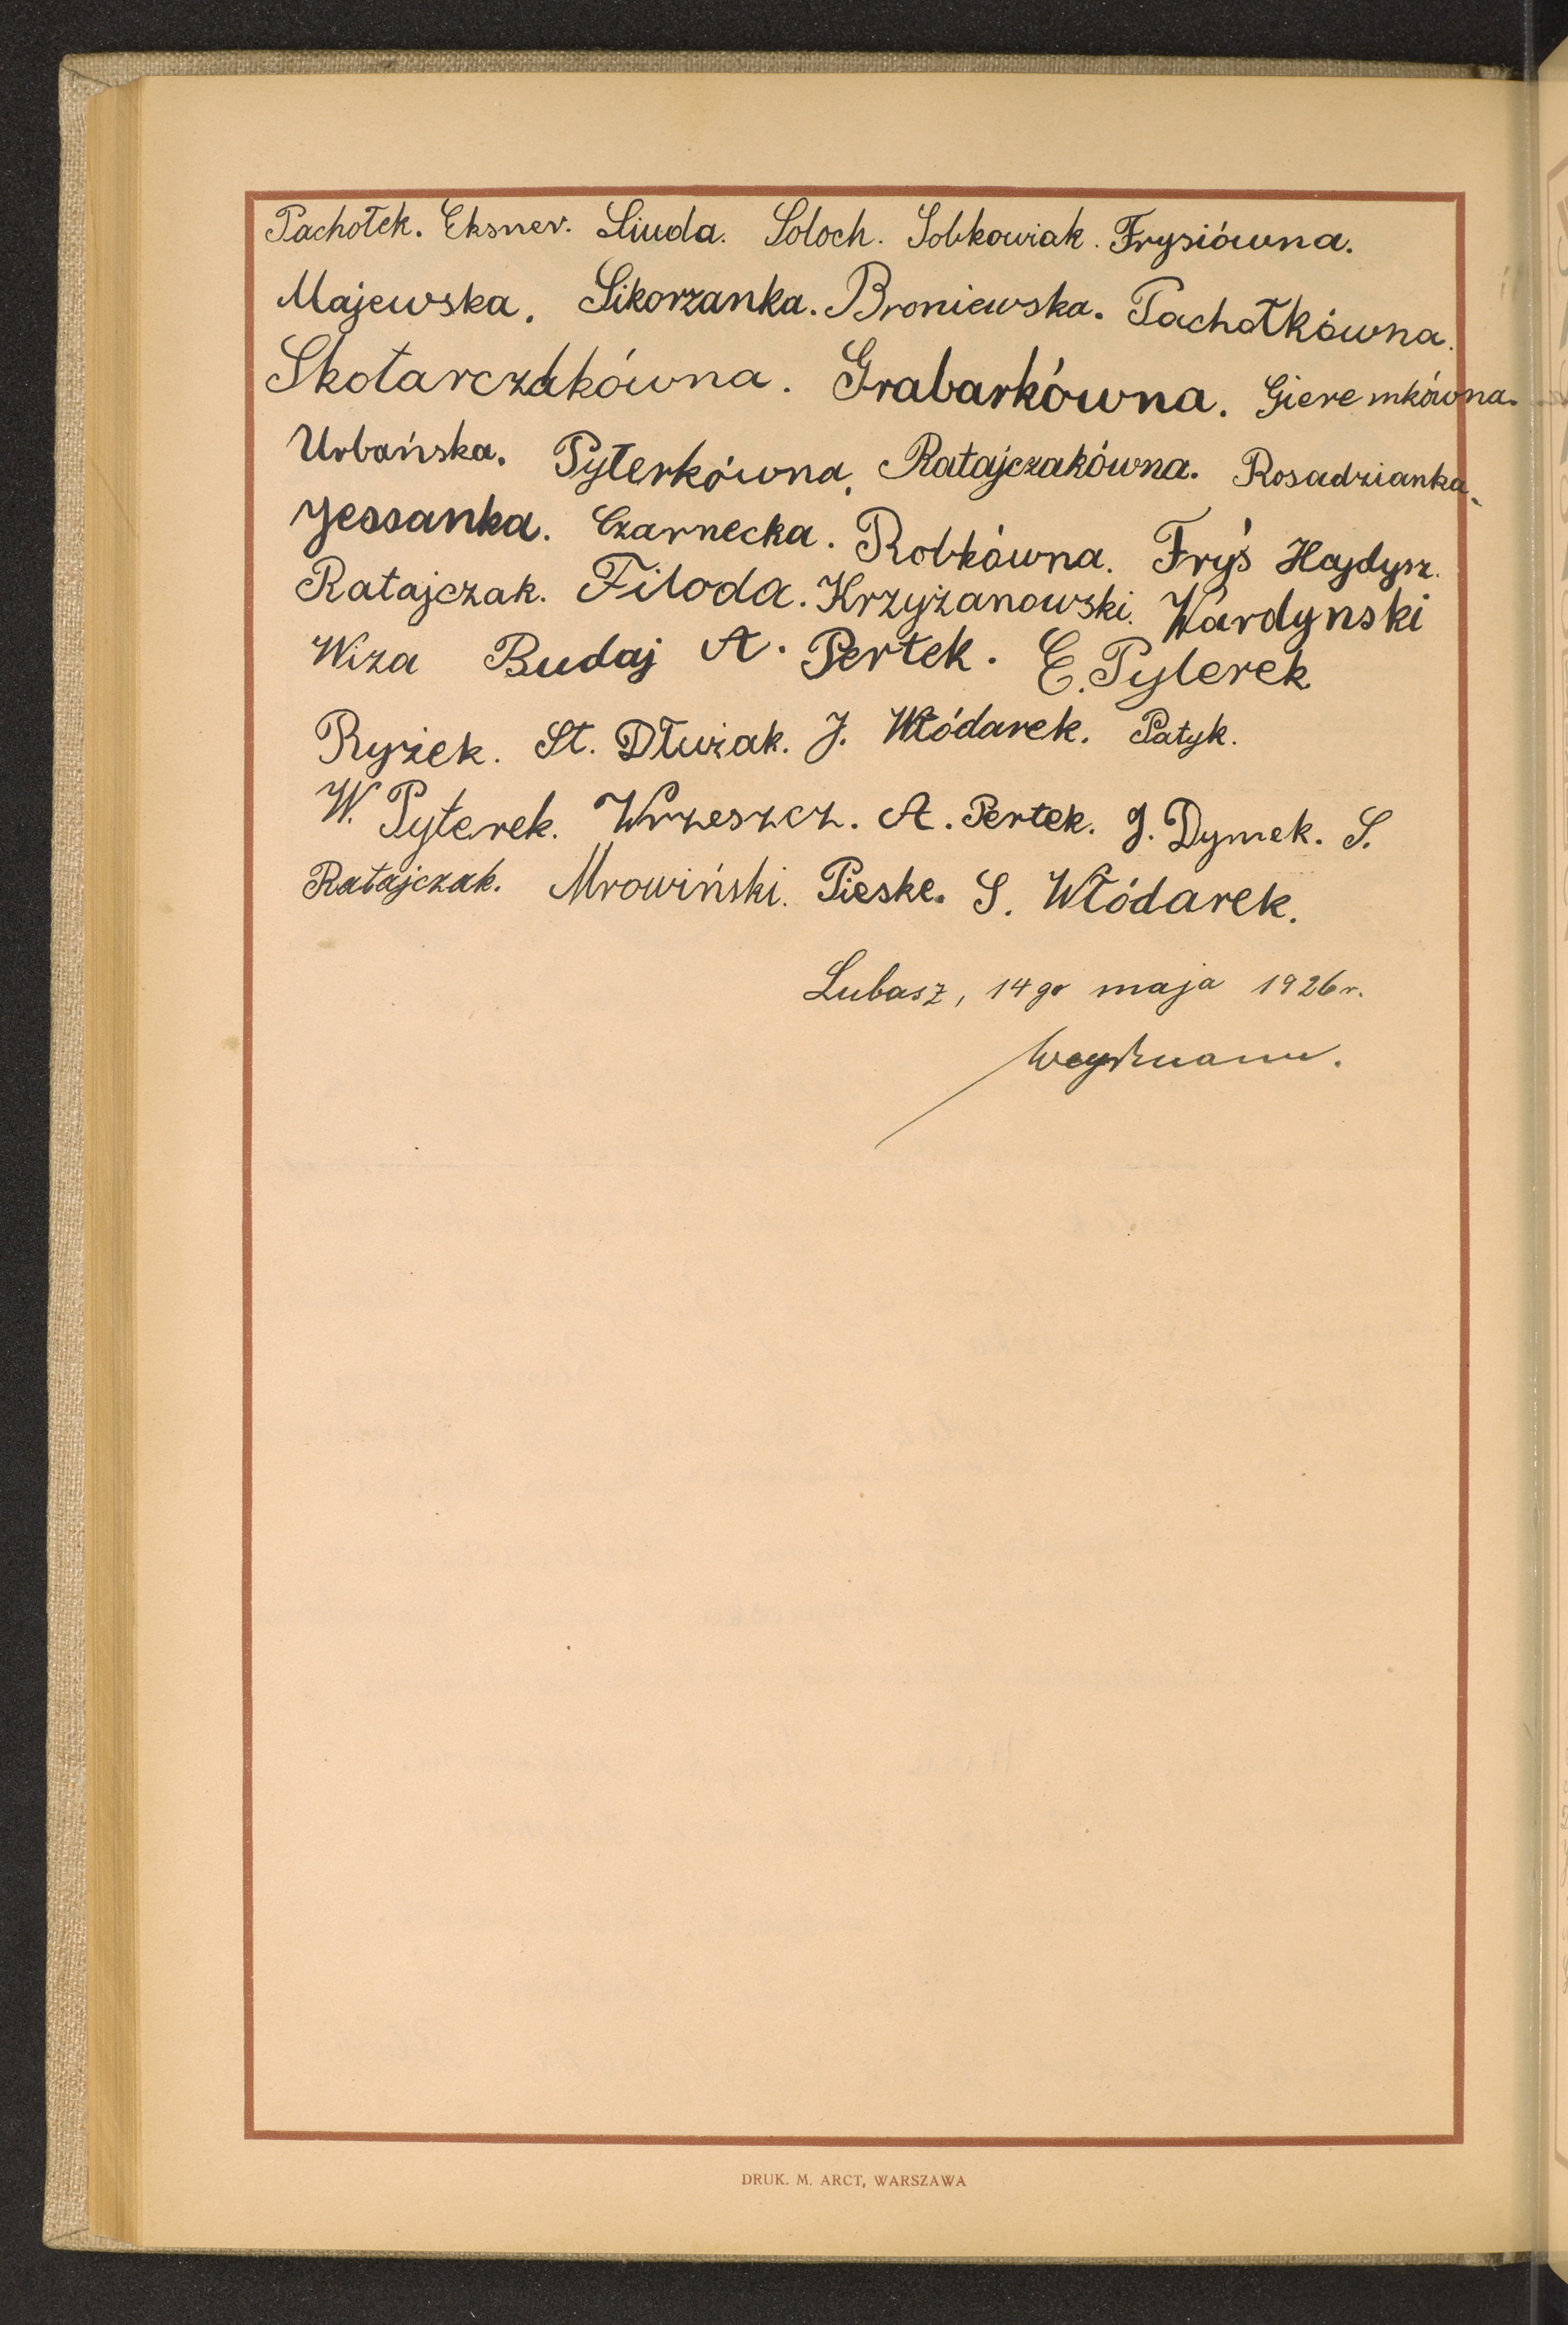 Pachołek. Eksner. Liuda. Soloch. Sobkowiak. Frysiówna.
Majewska. Sikorzanka. Broniewska. Pachołkówna.
Skotarczakówna. Grabarkówna. Gieremkówna.
Urbańska. Pyterkówna. Ratajczakówna. Rosadzianka.
Jessanka. Czarnecka. Robkówna. Fryś Hajdysz.
Ratajczak. Filoda. Krzyżanowski. Wardynski
Wiza Budaj A. Pertek. E. Pyterek
Ryżek. St. Dłużak. J. Włódarek. Patyk.
W. Pyterek. Wrzeszcz. A. Pertek. J. Dymek. S.
Ratajczak. Mrowiński. Pieske. S. Włódarek.
Lubasz, 14go maja 1926r.
DRUK. M. ARCT, WARSZAWA